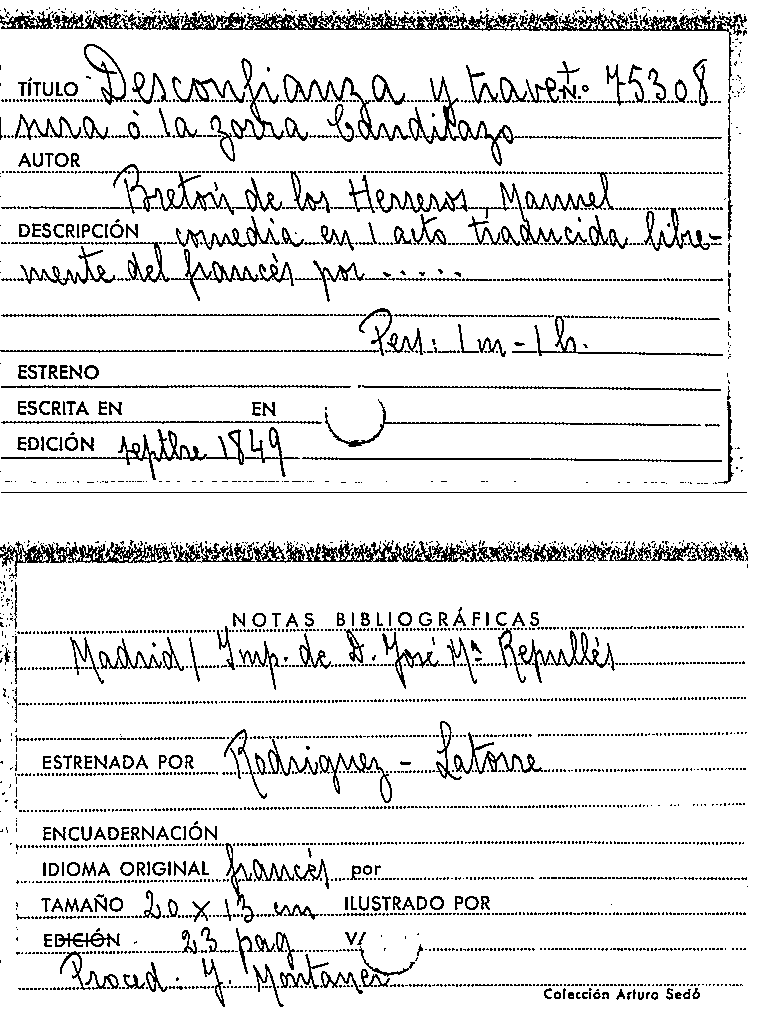 TÍTULO Desconfianza y trave- N.º 75308
sura ó la zorra Candilazo
AUTOR
Bretón de los Herreros, Manuel
DESCRIPCIÓN comedia en 1 acto traducida libre-
mente del francés por .....
Pers: 1 m - 1 h.
ESTRENO
ESCRITA EN EN
EDICIÓN septbre 1849
NOTAS BIBLIOGRÁFICAS
Madrid / Imp. de D. José Mª Repullés
ESTRENADA POR Rodriguez - Latorre
ENCUADERNACIÓN
IDIOMA ORIGINAL francés por
TAMAÑO 20 x 13 cm ILUSTRADO POR
EDICIÓN 23 pag V/
Proced. Y. Montaner
Colección Arturo Sedó